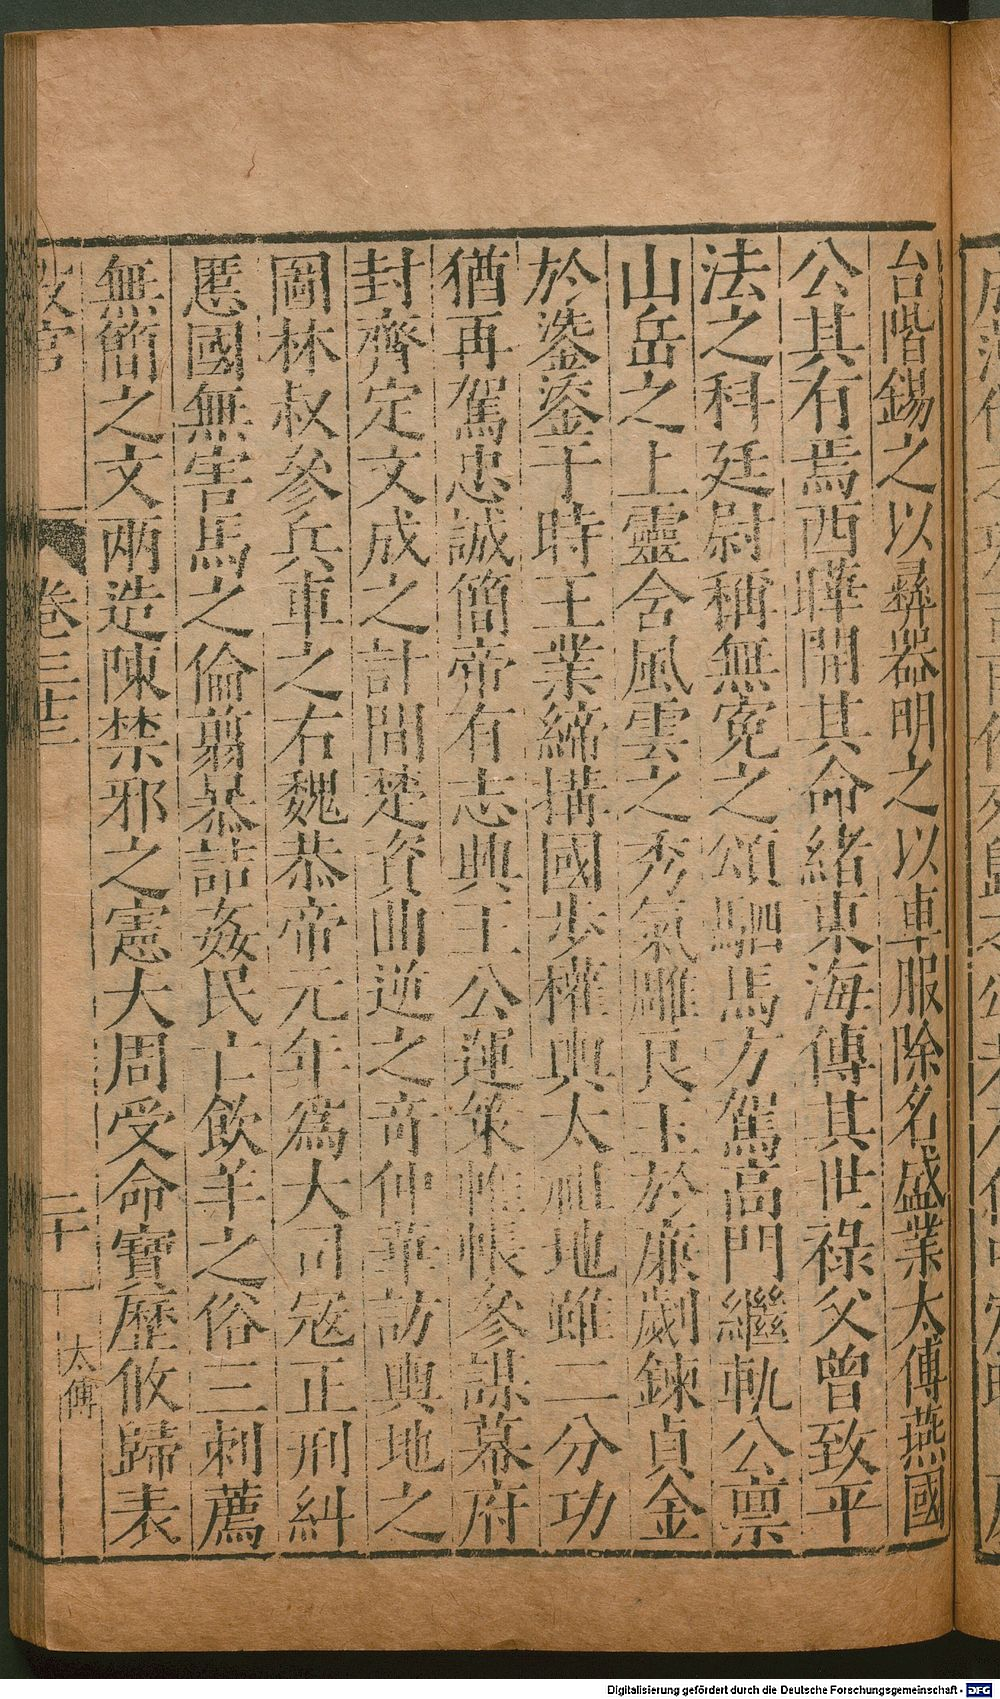 台階錫之以彞器明之以車服除名盛業太傅燕國
公其有焉西曄開其命緒東海傳其世祿父曾致平
法之科廷尉稱無寃之頌駟馬方駕高門繼軌公禀
山岳之上靈含風雲之秀氣雕良玉於廉劌鍊貞金
於㳻鋈于時王業締構國步權輿太祖地雖二分功
猶再駕忠誠簡帝有志興王公運䇿帷帳參謀幕府
封齊定文成之計間楚資曲逆之竒仲華訪輿地之
圖林叔參兵車之右魏恭帝元年爲大司寇正刑糾
慝國無害馬之倫翦暴詰姦民亡飲羊之俗三刺薦
無簡之文兩造陳禁邪之憲大周受命寶歷攸歸表
卷三十三
二十
太傅
Digitalisierung gefördert durch die Deutsche Forschungsgemeinschaft - DFG